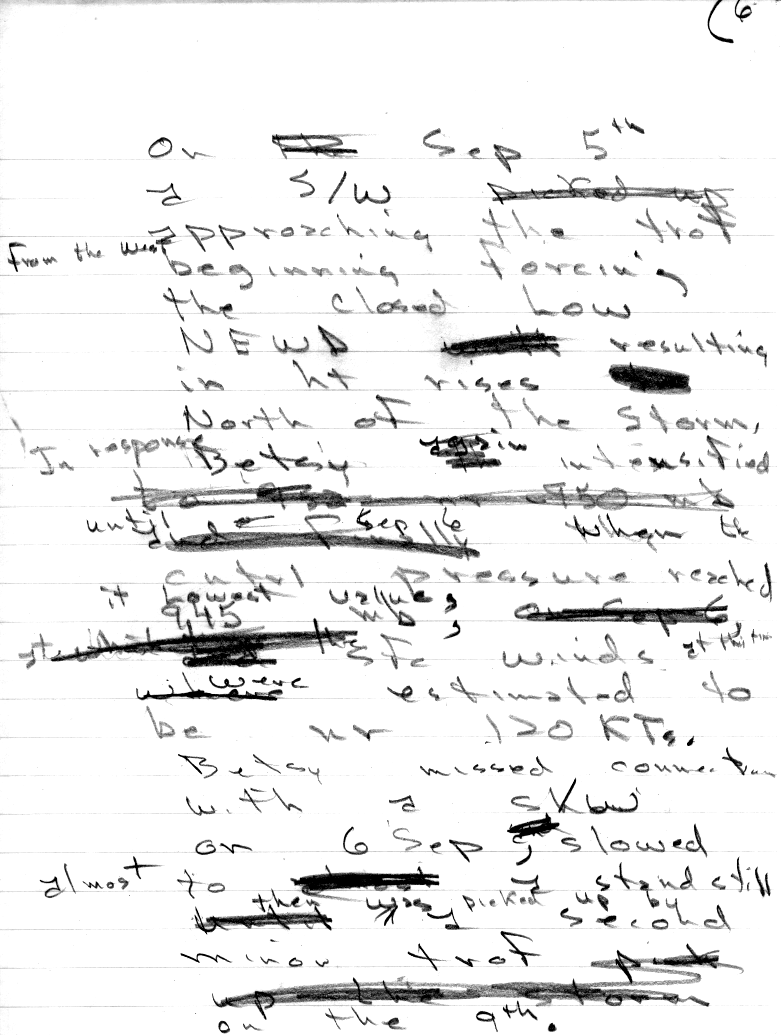 (6
On Sep 5th
a S/W picked up
approaching the trof
from the west
beginning forcing
the closed Low
NEWD resulting
in ht rises
North of the storm,
In response
Betsy again intensified
950 mb
until Sep 6 when the
cntrl pressure reached
it lowest value,
945 mb, on Sep 6,
sfc winds at this time
were estimated to
be nr 120 KTs.
Betsy missed connection
with a S/W
on 6 Sep, slowed
almost to a stand still
then was picked up by
until a second
minor trof pick
up the storm
on the 9th.